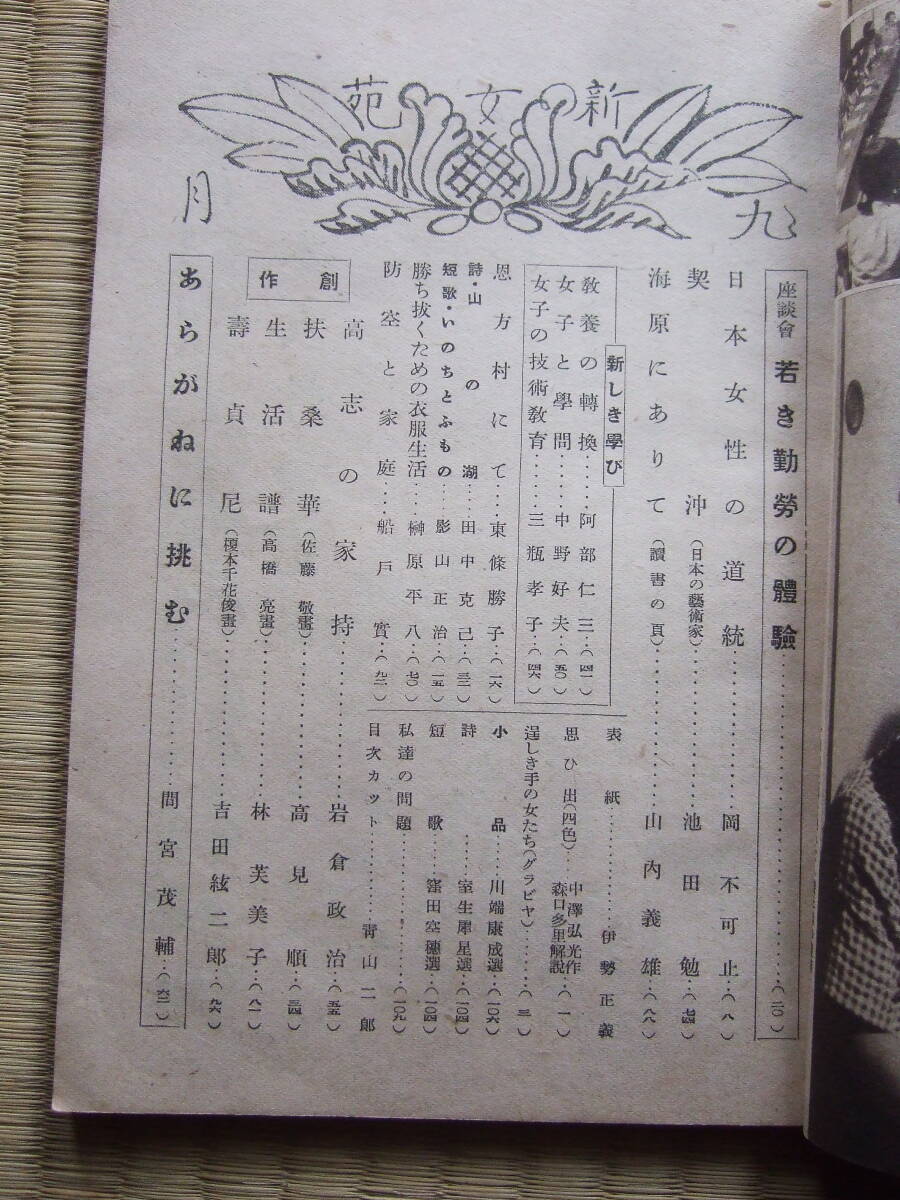 新女苑
九月
座談會 若き勤勞の體驗‥‥‥(二〇)
日本女性の道統‥‥‥岡不可止‥(八)
契沖(日本の藝術家)‥‥‥池田勉‥(七四)
海原にありて(讀書の頁)‥‥‥山內義雄‥(八八)
新しき學び
敎養の轉換‥‥阿部仁三‥(四一)
女子と學問‥‥中野好夫‥(五〇)
女子の技術敎育‥‥三瓶孝子‥(四六)
恩方村にて‥‥東條勝子‥(一六)
詩・山の湖‥‥田中克己‥(三二)
短歌・いのちとふもの‥‥影山正治‥(一五)
勝ち拔くための衣服生活‥‥榊原平八‥(七〇)
防空と家庭‥‥船戶實‥(九二)
表紙‥‥‥伊勢正義
思ひ出(四色)‥‥中澤弘光作 森口多里解說‥(一)
逞しき手の女たち(グラビヤ)‥‥(三)
小品‥‥川端康成選‥(一〇六)
詩‥‥室生犀星選‥(一〇四)
短歌‥‥窪田空穗選‥(一〇四)
私達の問題‥‥‥(一〇九)
目次カット‥‥‥靑山二郞
創作
高志の家持‥‥‥岩倉政治‥(五五)
扶桑華(佐藤敬畫)‥‥‥高見順‥(三四)
生活譜(高橋亮畫)‥‥‥林芙美子‥(八一)
壽貞尼(榎本千花俊畫)‥‥‥吉田絃二郞‥(九六)
あらがねに挑む‥‥‥間宮茂輔‥(六二)